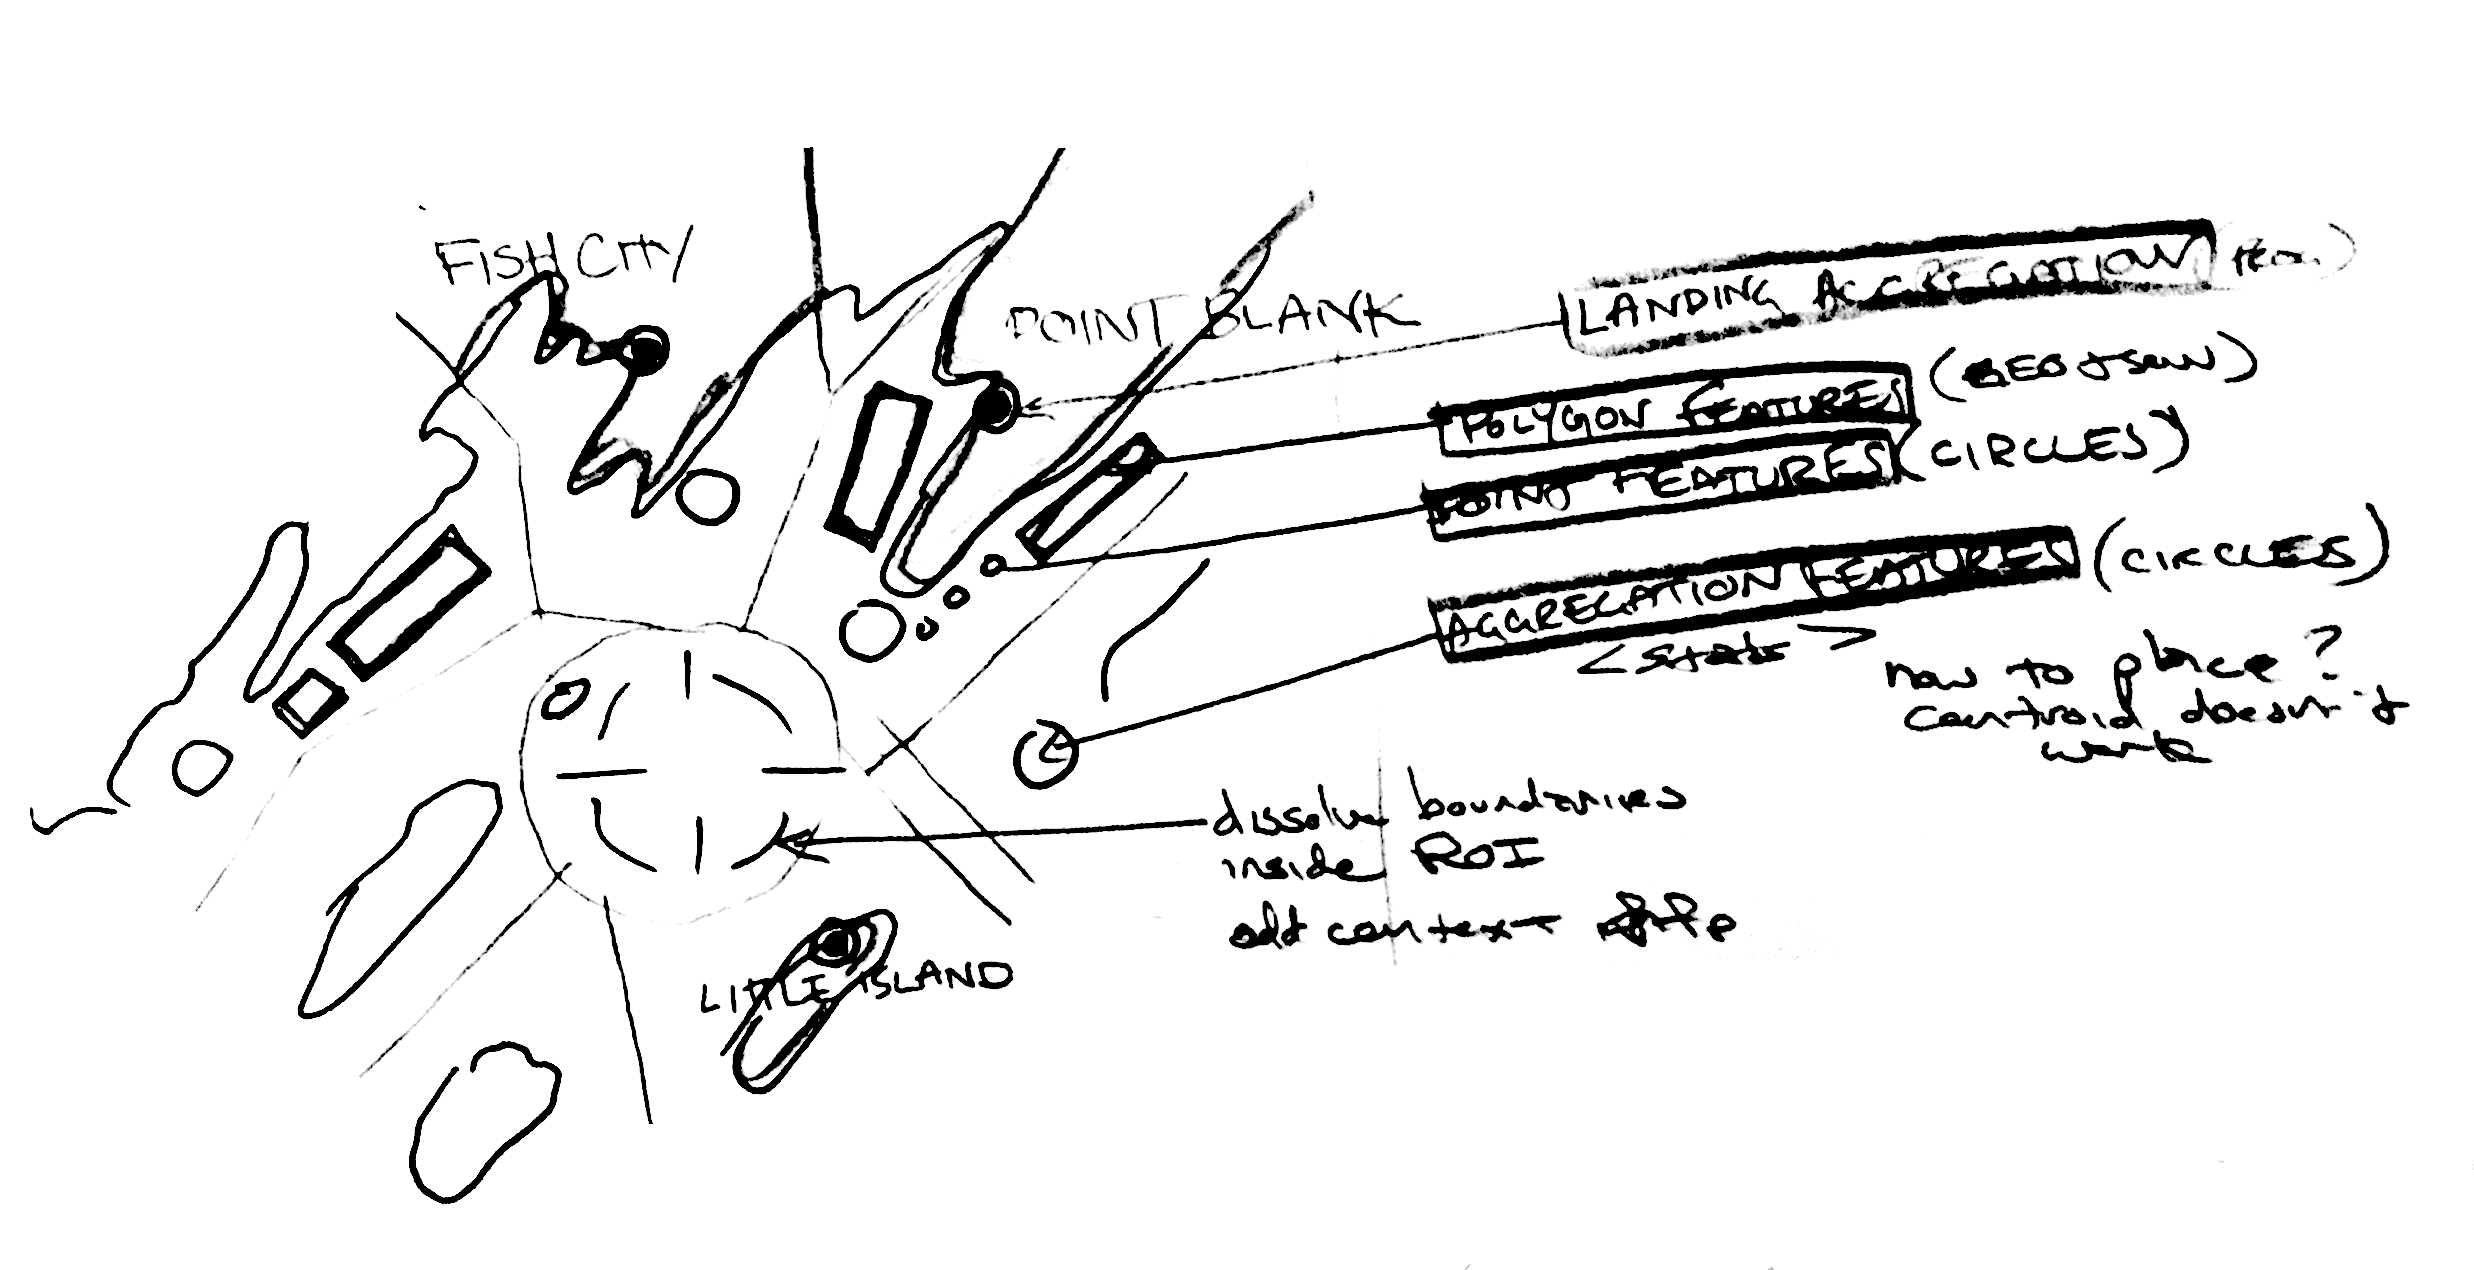 FISH CITY
POINT BLANK
LANDING AGGREGATION
POLYGON FEATURES (GEOJSON)
POINT FEATURES (CIRCLES)
AGGREGATION FEATURES (CIRCLES)
<stats>
how to place?
centroid doesn't
work
dissolve boundaries
inside ROI
add context
LITTLE ISLAND